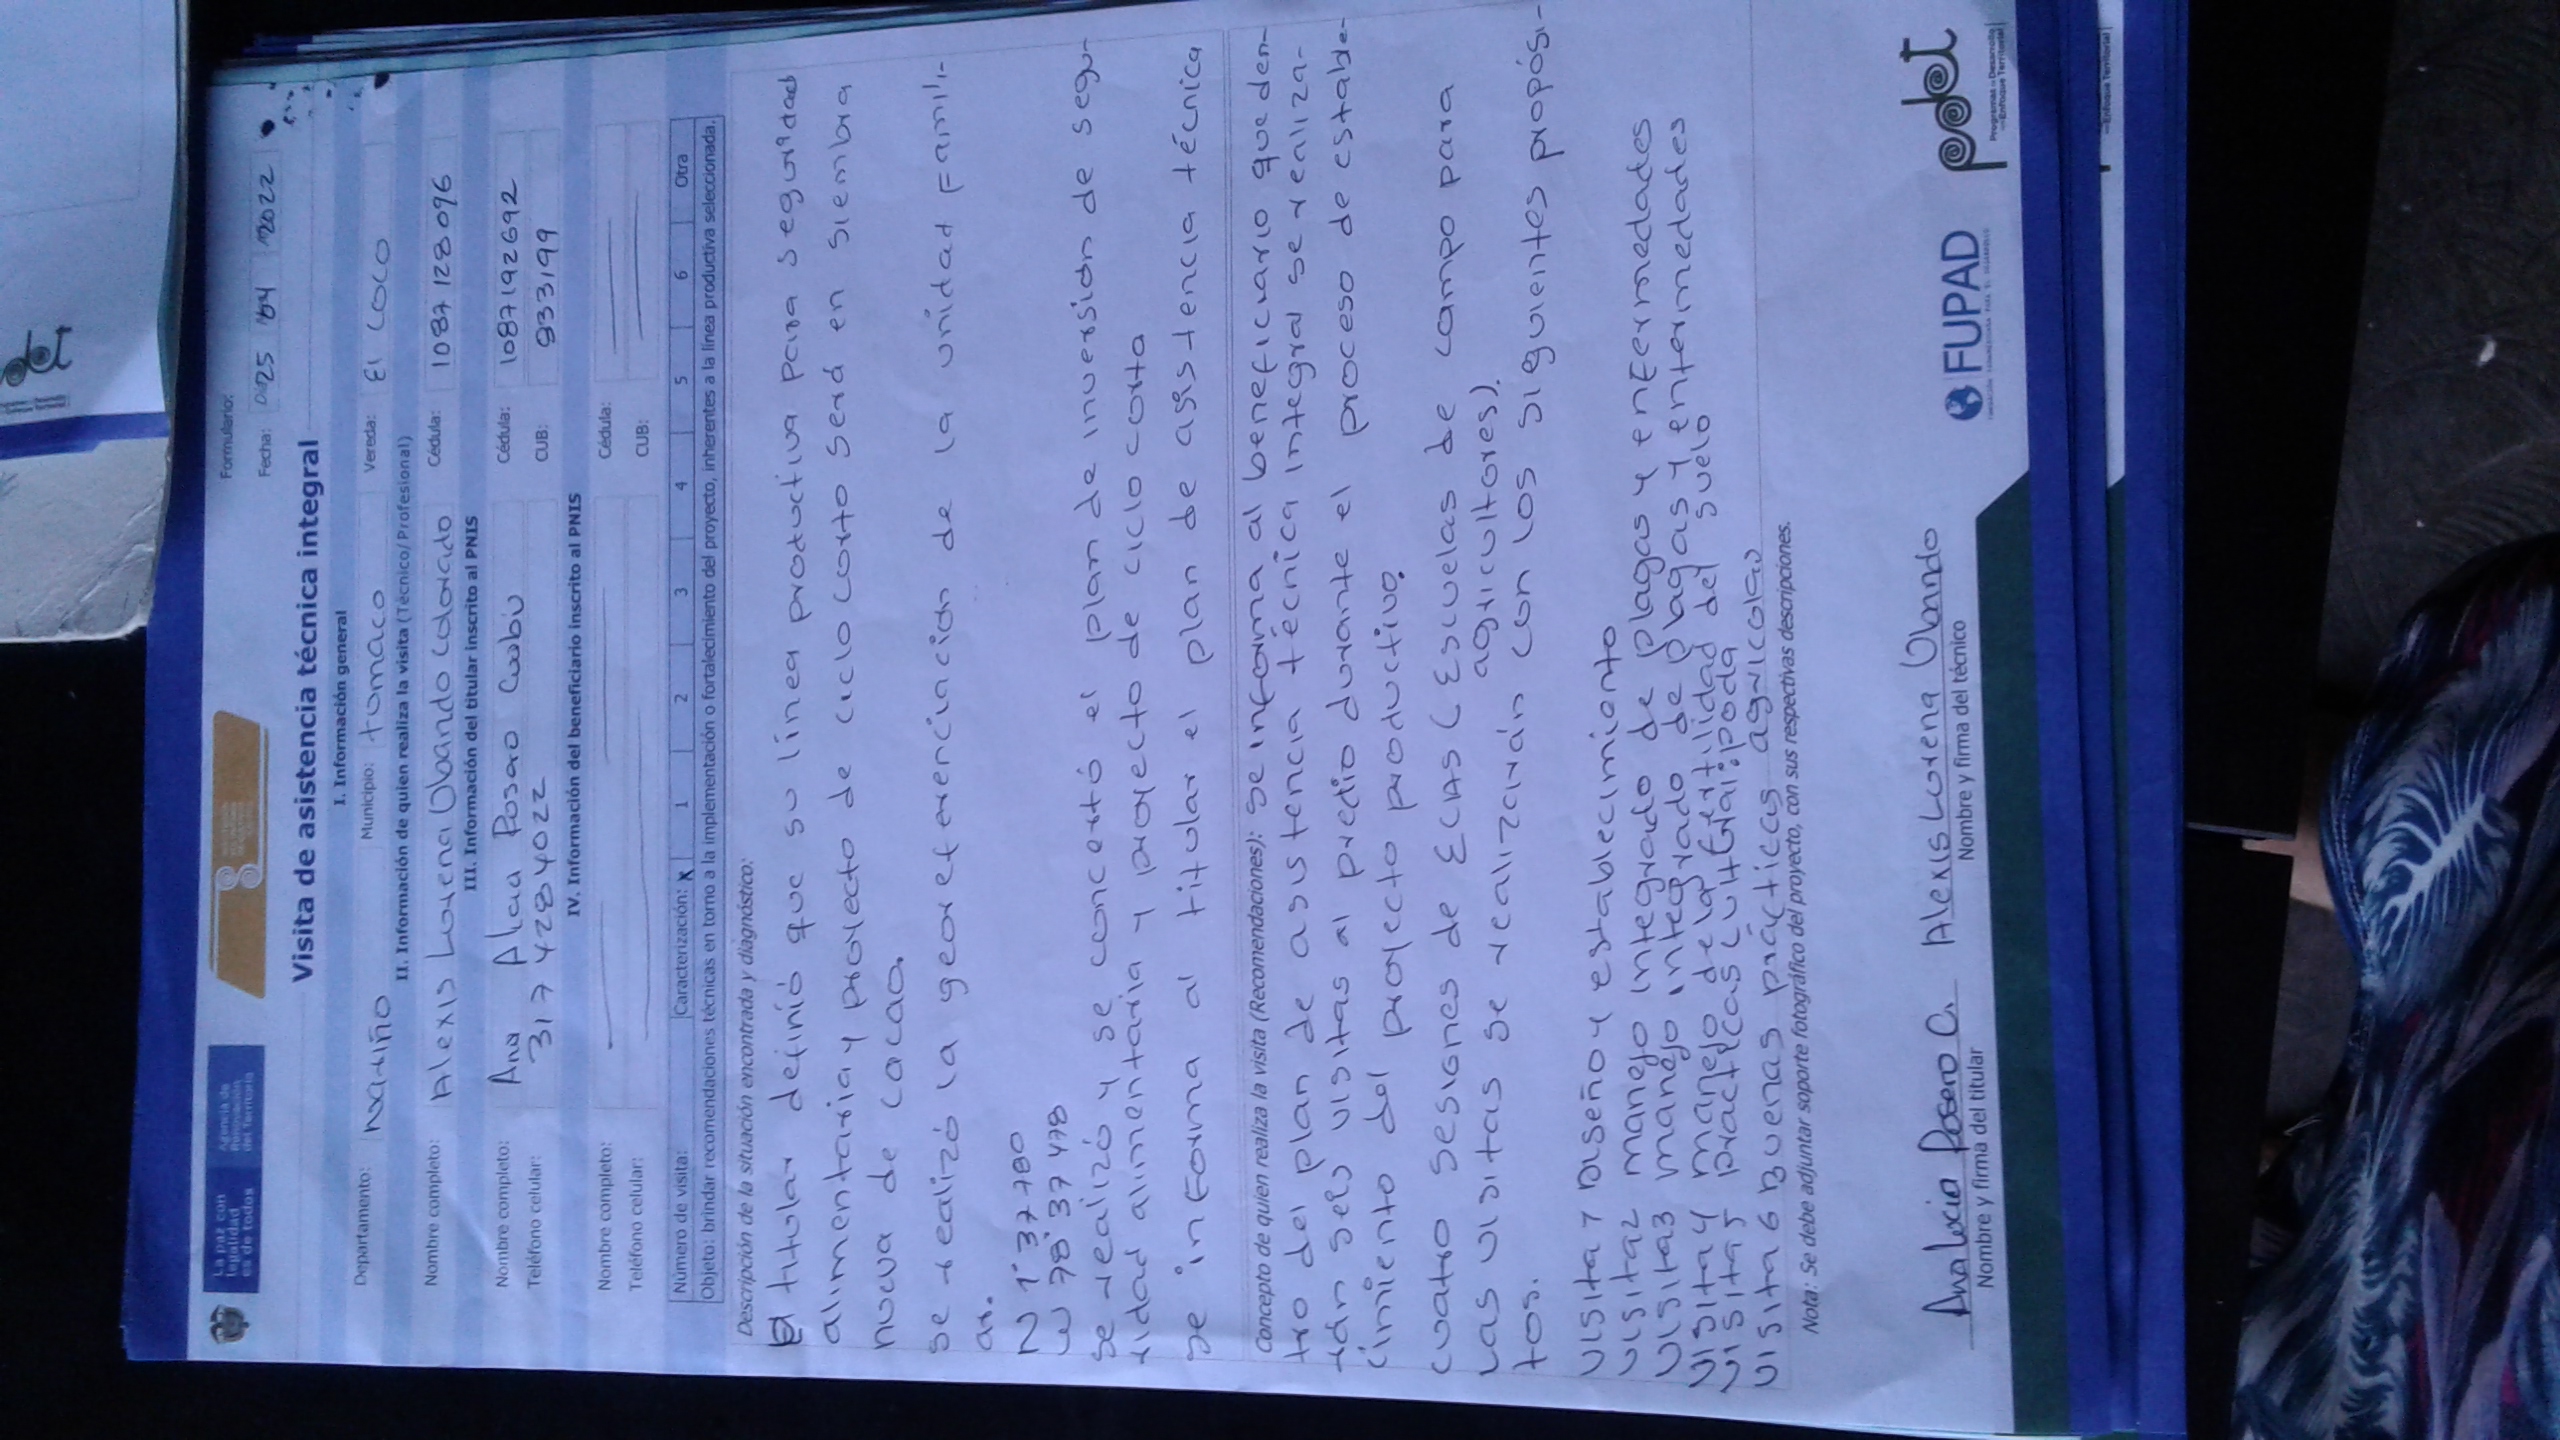 La paz con
legalidad
es de todos
Agencia de
Renovación
del Territorio
Formulario:
Fecha: 25 04 2022
Visita de asistencia técnica integral
I. Información general
Departamento: Nariño Municipio: tumaco Vereda: El coco
II. Información de quien realiza la visita (Técnico/Profesional)
Nombre completo: Alexis Lorena Obando Colorado Cédula: 1087128096
III. Información del titular inscrito al PNIS
Nombre completo: Ana Alicia Posaro Cédula: 1087192692
Teléfono celular: 317 4284022 CUB: 933199
IV. Información del beneficiario inscrito al PNIS
Nombre completo: Cédula:
Teléfono celular: CUB:
Número de visita: Caracterización: X 1 2 3 4 5 6 Otra
Objeto: brindar recomendaciones técnicas en torno a la implementación o fortalecimiento del proyecto, inherentes a la línea productiva seleccionada.
Descripción de la situación encontrada y diagnóstico:
El titular definió que su línea productiva para seguridad
alimentaria y proyecto de ciclo corto será en siembra
nueva de cacao.
se realizó la georeferenciación de la unidad Famili-
ar.
N 1°37'780
W 78°37'478
se realizó y se concertó el plan de inversión de segu-
ridad alimentaria y proyecto de ciclo corto
se informa al titular el plan de asistencia técnica
Concepto de quien realiza la visita (Recomendaciones): se informa al beneficiario que den-
tro del plan de asustencia técnica integral se realiza-
rán seis visitas al predio durante el proceso de estable-
cimiento del proyecto productivo.
cuatro sesiones de ECAS (Escuelas de campo para
agricultores).
Las visitas se realizarán con los siguientes propósi-
tos.
visita 1 Diseño y establecimiento
visita2 manejo integrado de plagas y enfermedades
visita3 manejo integrado de plagas y enfermedades
visita4 manejo de la fertilidad del suelo
visita5 practicas cultural: poda
visita6 Buenas prácticas agricolas
Nota: Se debe adjuntar soporte fotográfico del proyecto, con sus respectivas descripciones.
Ana Lucia Posero C. Alexis Lorena Obando
Nombre y firma del titular Nombre y firma del técnico
FUPAD
pdet
Programas de Desarrollo
con Enfoque Territorial